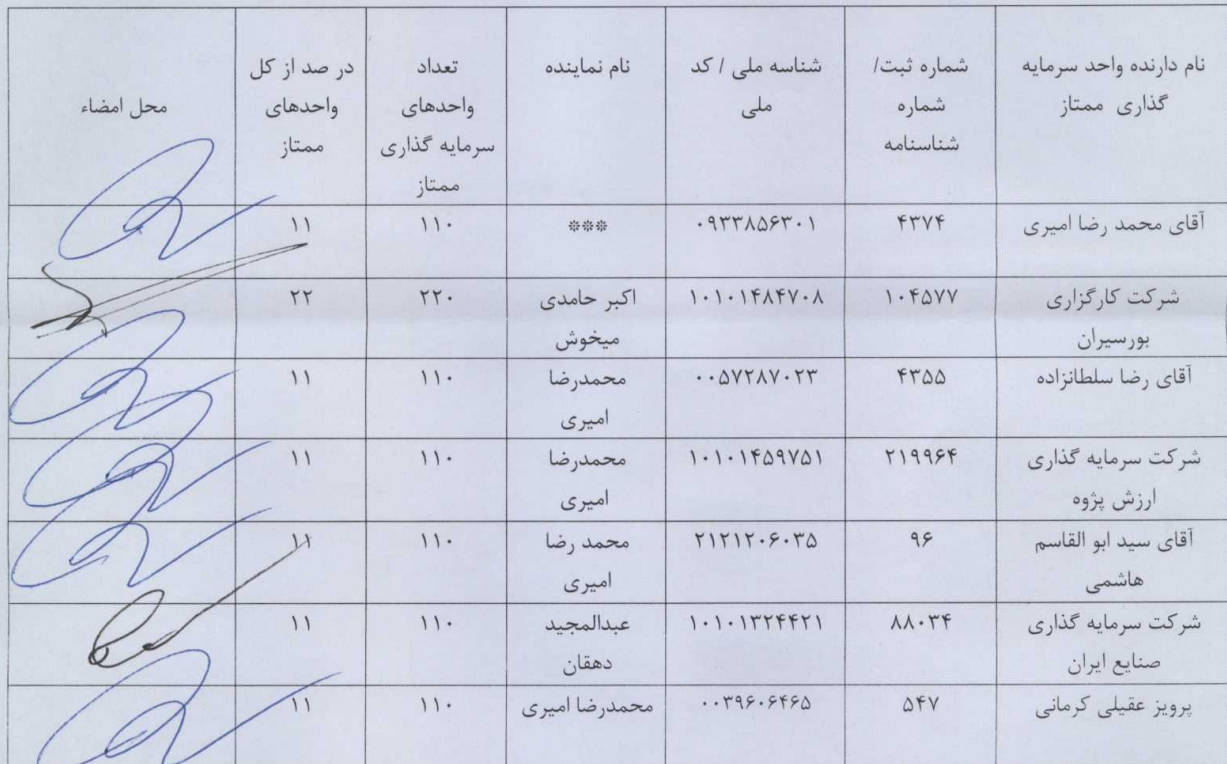 نام دارنده واحد سرمایه گذاری ممتاز | شماره ثبت/ شماره شناسنامه | شناسه ملی / کد ملی | نام نماینده | تعداد واحدهای سرمایه گذاری ممتاز | در صد از کل واحدهای ممتاز | محل امضاء
آقای محمد رضا امیری | ۴۳۷۴ | ۰۹۳۳۸۵۶۳۰۱ | *** | ۱۱۰ | ۱۱
شرکت کارگزاری بورسیران | ۱۰۴۵۷۷ | ۱۰۱۰۱۴۸۴۷۰۸ | اکبر حامدی میخوش | ۲۲۰ | ۲۲
آقای رضا سلطانزاده | ۴۳۵۵ | ۰۰۵۷۲۸۷۰۲۳ | محمدرضا امیری | ۱۱۰ | ۱۱
شرکت سرمایه گذاری ارزش پژوه | ۲۱۹۹۶۴ | ۱۰۱۰۱۴۵۹۷۵۱ | محمدرضا امیری | ۱۱۰ | ۱۱
آقای سید ابو القاسم هاشمی | ۹۶ | ۲۱۲۱۲۰۶۰۳۵ | محمد رضا امیری | ۱۱۰ | ۱۱
شرکت سرمایه گذاری صنایع ایران | ۸۸۰۳۴ | ۱۰۱۰۱۳۲۴۴۲۱ | عبدالمجید دهقان | ۱۱۰ | ۱۱
پرویز عقیلی کرمانی | ۵۴۷ | ۰۰۳۹۶۰۶۴۶۵ | محمدرضا امیری | ۱۱۰ | ۱۱